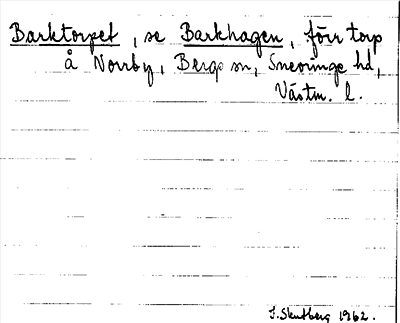 Barktorpet, se Barkhagen, förr torp
å Norrby, Bergs sn, Snevringe hd,
Västm. l.
J. Skutberg 1962.